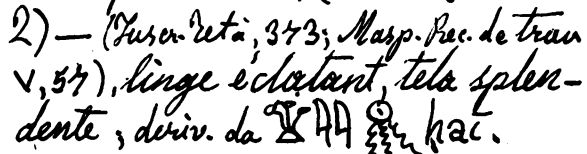 2) — (Inscr. Zetà, 373; Masp. Rec. de trav
V, 57), linge éclatant, tela splen-
dente; deriv. da haì.